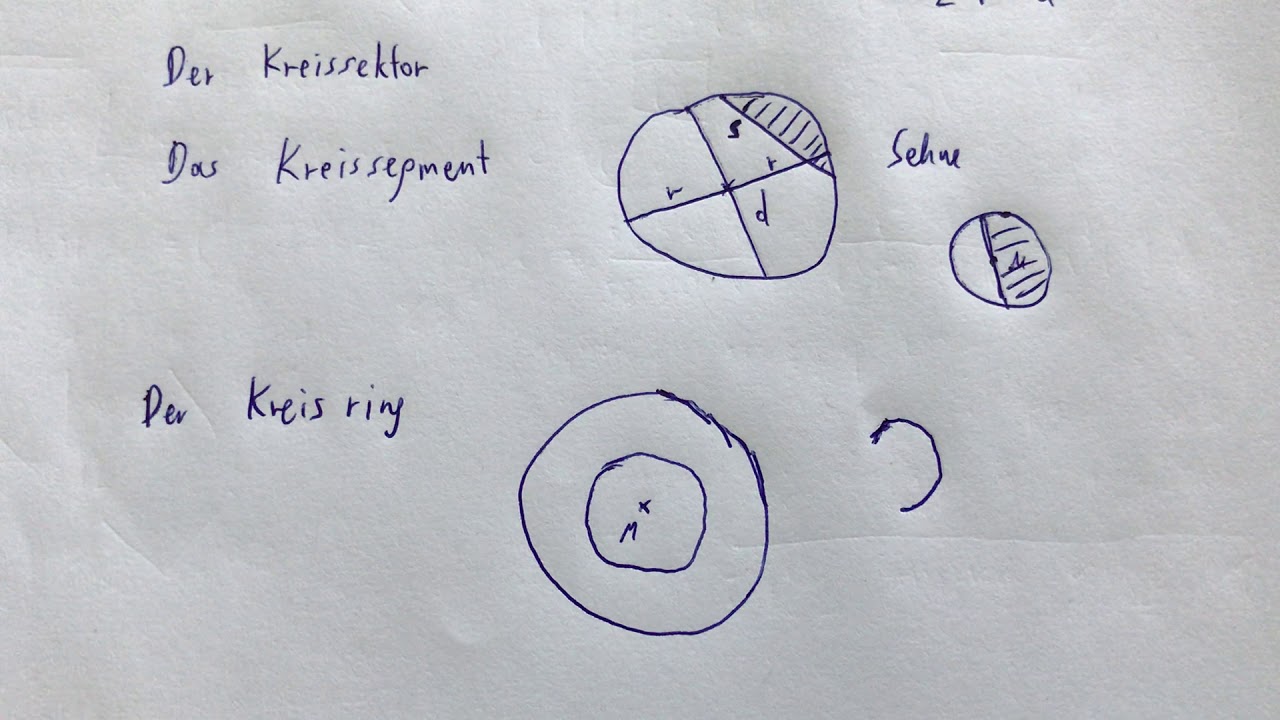 Der Kreissektor
Das Kreissegment
s
r
r
d
Sehne
Der Kreisring
M